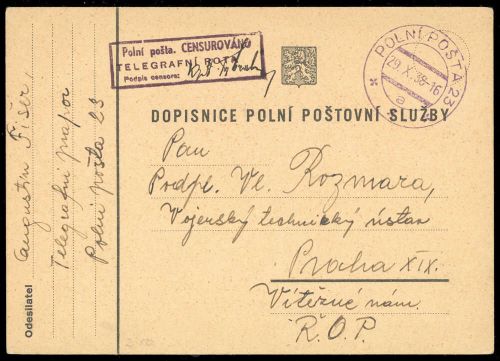 Polní pošta. CENSUROVÁNO
TELEGRAFNÍ ROTA
Podpis censora:
POLNÍ POŠTA 23
29.X.38-16
a
DOPISNICE POLNÍ POŠTOVNÍ SLUŽBY
Pan
Podpl. Vl. Rozmara,
Vojenský technický ústav
Praha XIX.
Vítězné nám.
Ř.O.P.
Odesilatel
Augustin Fišer,
Telegrafní prapor
Polní pošta 23